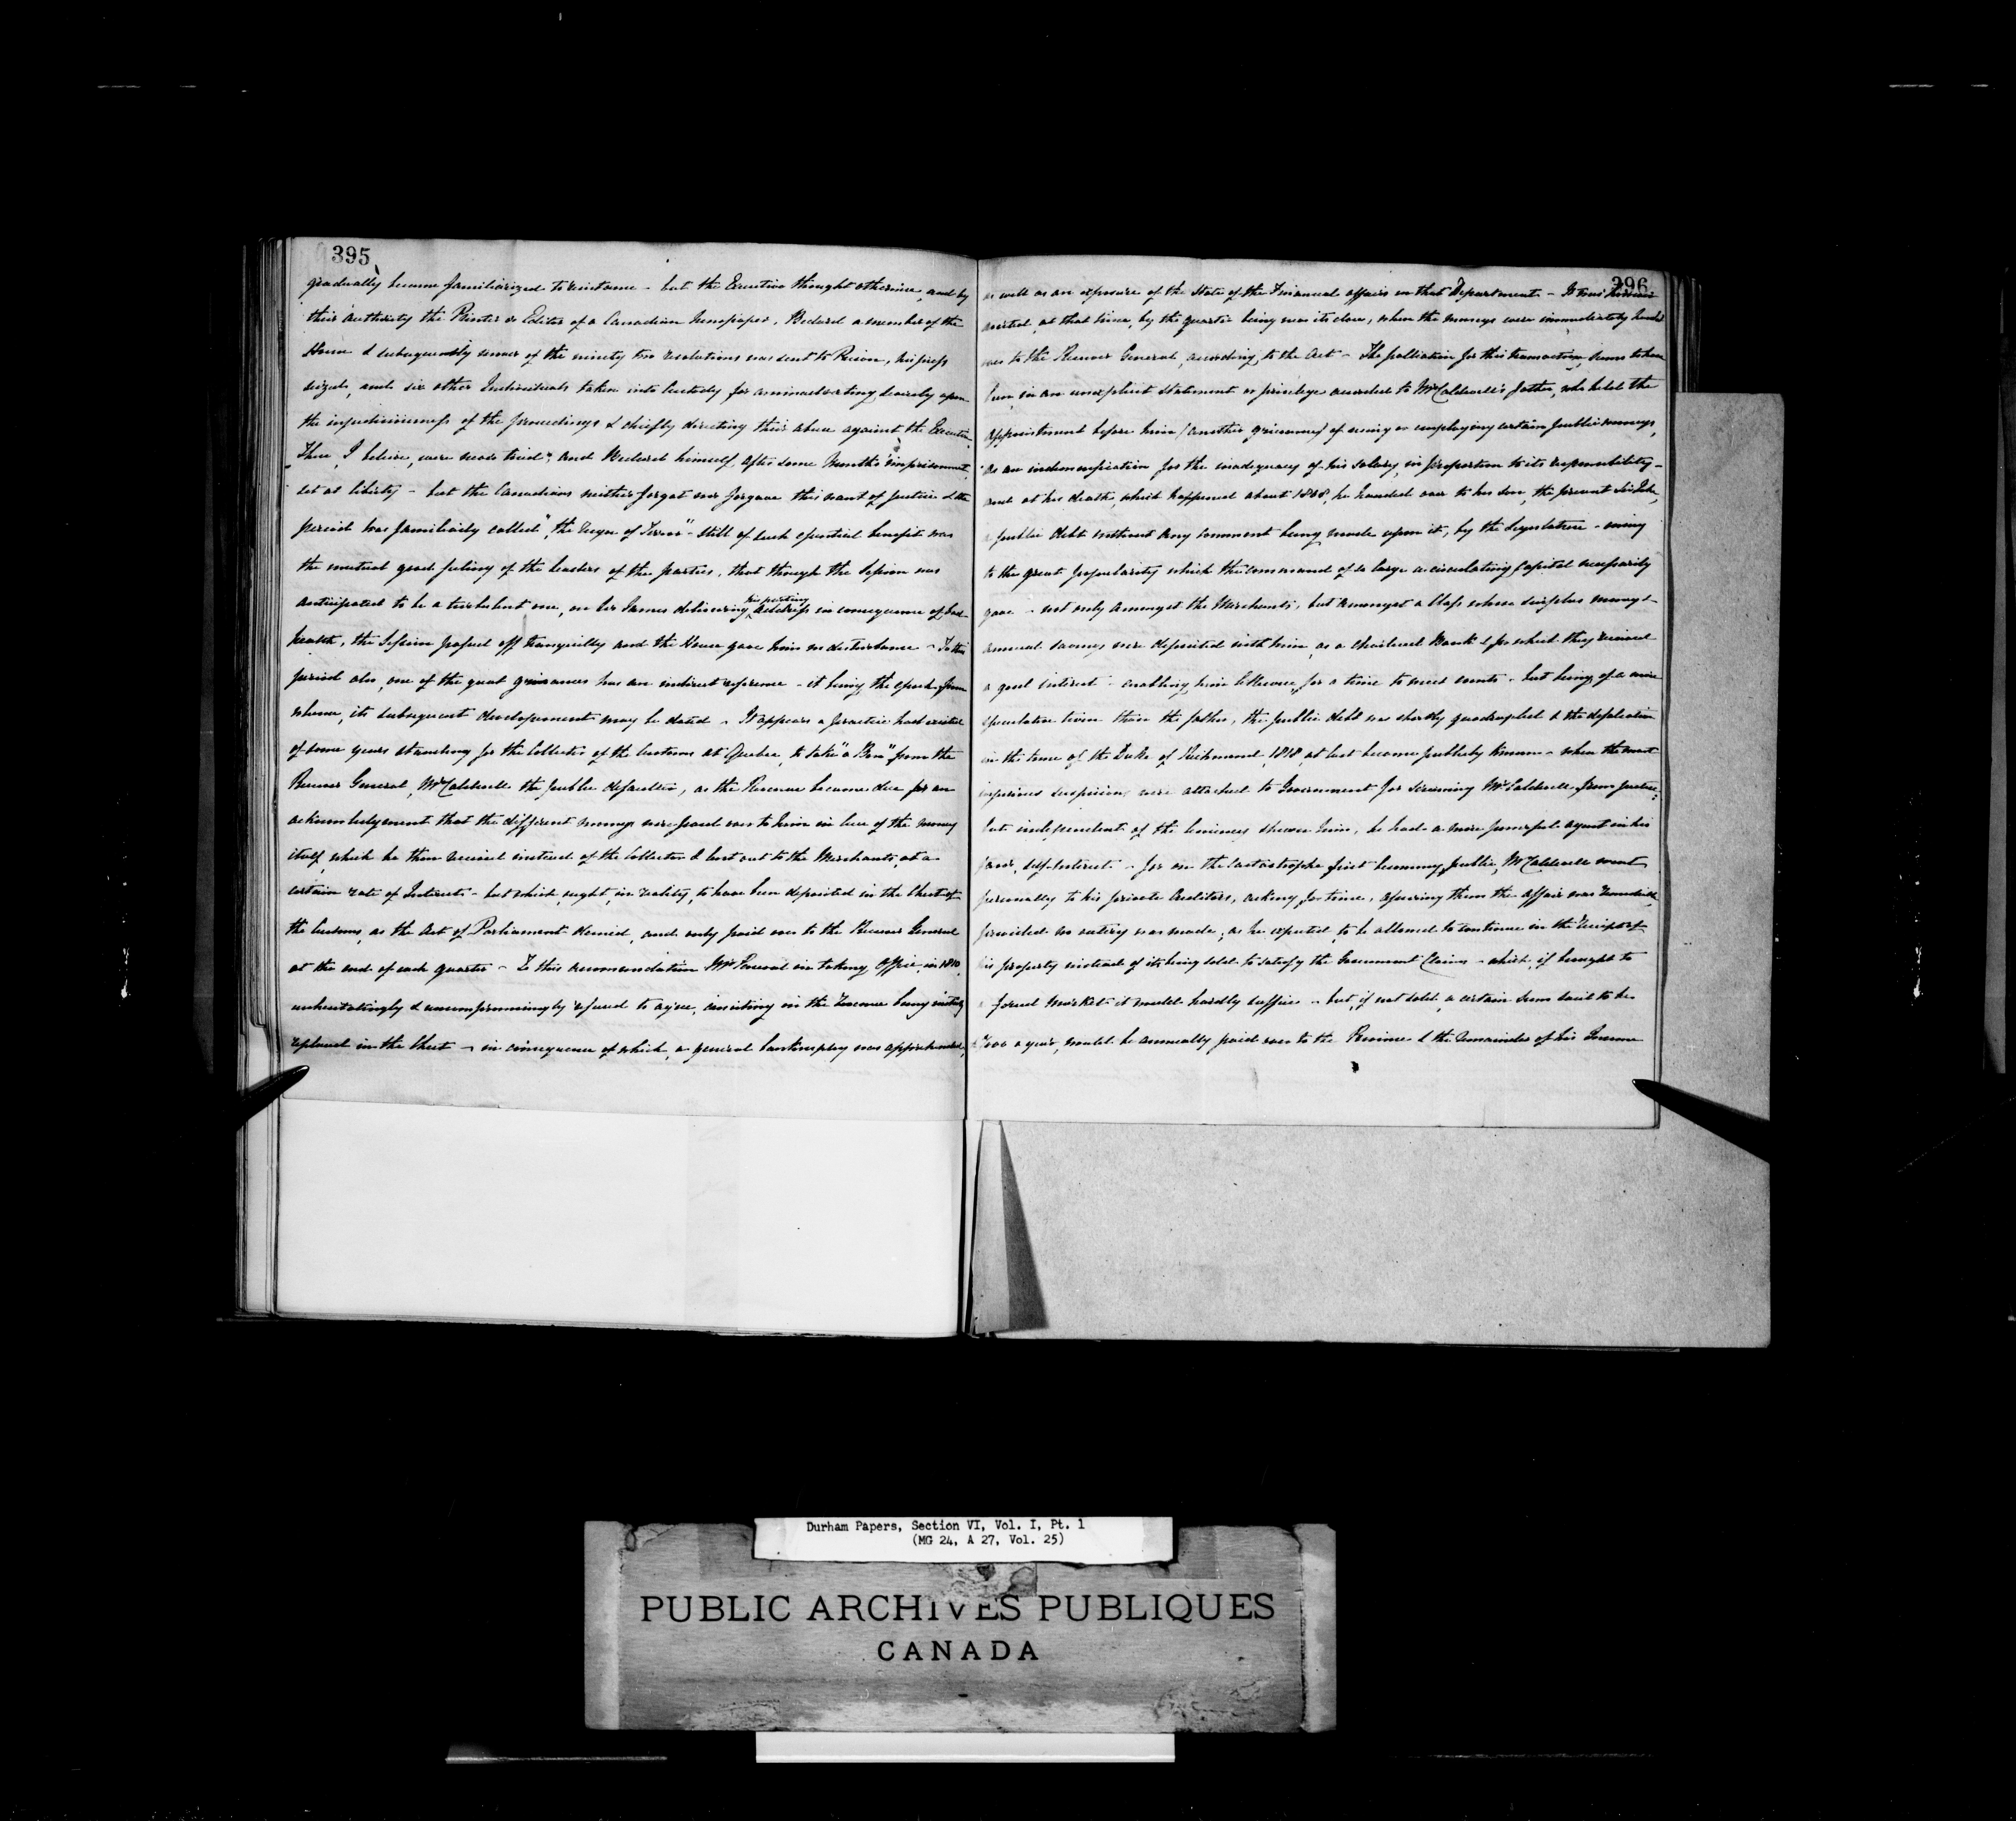 395
gradually become familiarized to resistance - but the Executive thought otherwise, and by
their authority the Printer or Editor of a Canadian Newspaper, Bedard a member of the
House & subsequently mover of the ninety two resolutions was sent to Prison, his press
seized, and six other Individuals taken into Custody for animadverting severely upon
the injudiciousness of the proceedings & chiefly directing their abuse against the Executive.
These, I believe, were never tried; and Bedard himself, after some Months imprisonment,
set at liberty - but the Canadians neither forgot nor forgave this want of Justice & the
period was familiarly called "the Reign of Terror" - Still of such essential benefit was
the mutual good feeling of the leaders of the parties, that though the Session was
anticipated to be a turbulent one, on Sir James delivering his parting Address in consequence of bad
health, the Session passed off tranquilly and the House gave him no disturbance - To this
period also, one of the great grievances has an indirect reference - it being the epoch from
whence, its subsequent development may be dated - It appears a practice had existed
of some years standing for the Collector of the Customs at Quebec, to take "a Bon" from the
Receiver General, Mr Caldwell the public defaulter, as the Revenue became due for an
acknowledgement that the different moneys were paid over to him in lieu of the money
itself, which he then received instead of the Collector & lent out to the Merchants at a
certain rate of Interest - but which, ought, in reality, to have been deposited in the Chest of
the Customs, as the Act of Parliament desired, and only paid over to the Receiver General
at the end of each quarter - To this accommodation Mr Perceval on taking Office, in 1810,
unhesitatingly & uncompromisingly refused to agree, insisting on the Revenue being
replaced in the Chest - in consequence of which, a general bankruptcy was apprehended,
396
as well as an exposure of the State of the Financial affairs in that Department - It was however
averted, at that time, by the quarter being near its close, when the moneys were immediately handed
over to the Receiver General, according to the Act - The palliation for this transaction, seems to have
been, in an unexplicit statement or privilege accorded to Mr Caldwell's father, who held the
appointment before him (another grievance) of using or employing certain public moneys,
as an indemnification for the inadequacy of his salary, in proportion to its responsibility -
and at his death, which happened about 1808, he handed over to his son, the present Sir John,
a public debt without any comment being made upon it, by the Legislature - owing
to the great popularity which the command of so large a circulating Capital necessarily
gave - not only amongst the Merchants, but amongst a Class whose surplus moneys &
annual savings were deposited with him, as a Chartered Bank & for which they received
a good interest - enabling him likewise, for a time to meet wants - but being of a more
speculative turn than the father, the public debt was shortly quadrupled & the defalcation
in the time of the Duke of Richmond, 1818, at last became publicly known - when the most
injurious suspicions were attached to Government for screening Mr Caldwell from Justice;
but independent of the leniency shewn him, he had a more powerful agent in his
favor, self-Interest - for on the Catastrophe first becoming public, Mr Caldwell went
personally to his private Creditors, asking for time, assuring them the affair was remedied,
provided no outcry was made; as he expected, to be allowed to continue in the receipt of
his property instead of its being sold to satisfy the Government Claim - which, if brought to
a forced Market it would hardly suffice - but, if not sold, a certain sum said to be
a year, would be annually paid over to the Province & the remainder of his Income
Durham Papers, Section VI, Vol. I, Pt. 1
(MG 24, A 27, Vol. 25)
PUBLIC ARCHIVES PUBLIQUES
CANADA